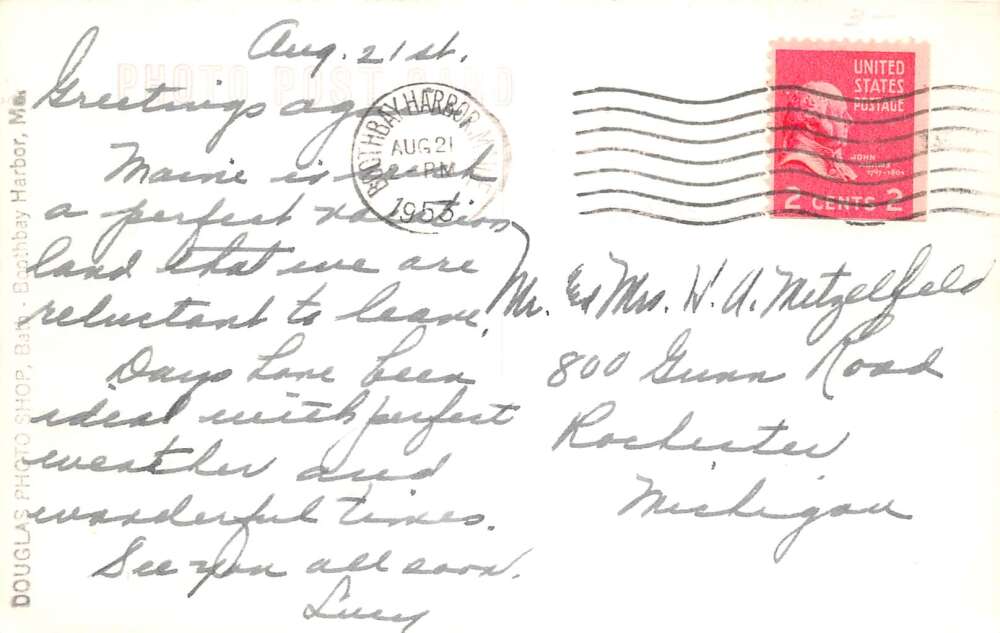 Aug. 21 st.
Greetings again
Maine is such
a perfect vacation
land that we are
reluctant to leave.
Days have been
ideal with perfect
weather and
wonderful times.
See you all soon.
Lucy
PHOTO POST CARD
DOUGLAS PHOTO SHOP, Bath - Boothbay Harbor, Me.
BOOTHBAY HARBOR, MAINE
AUG 21
PM
1953
UNITED
STATES
POSTAGE
JOHN
ADAMS
1797-1801
2 CENTS 2
Mr. & Mrs. W. A. Metzelfeld
800 Gunn Road
Rochester
Michigan